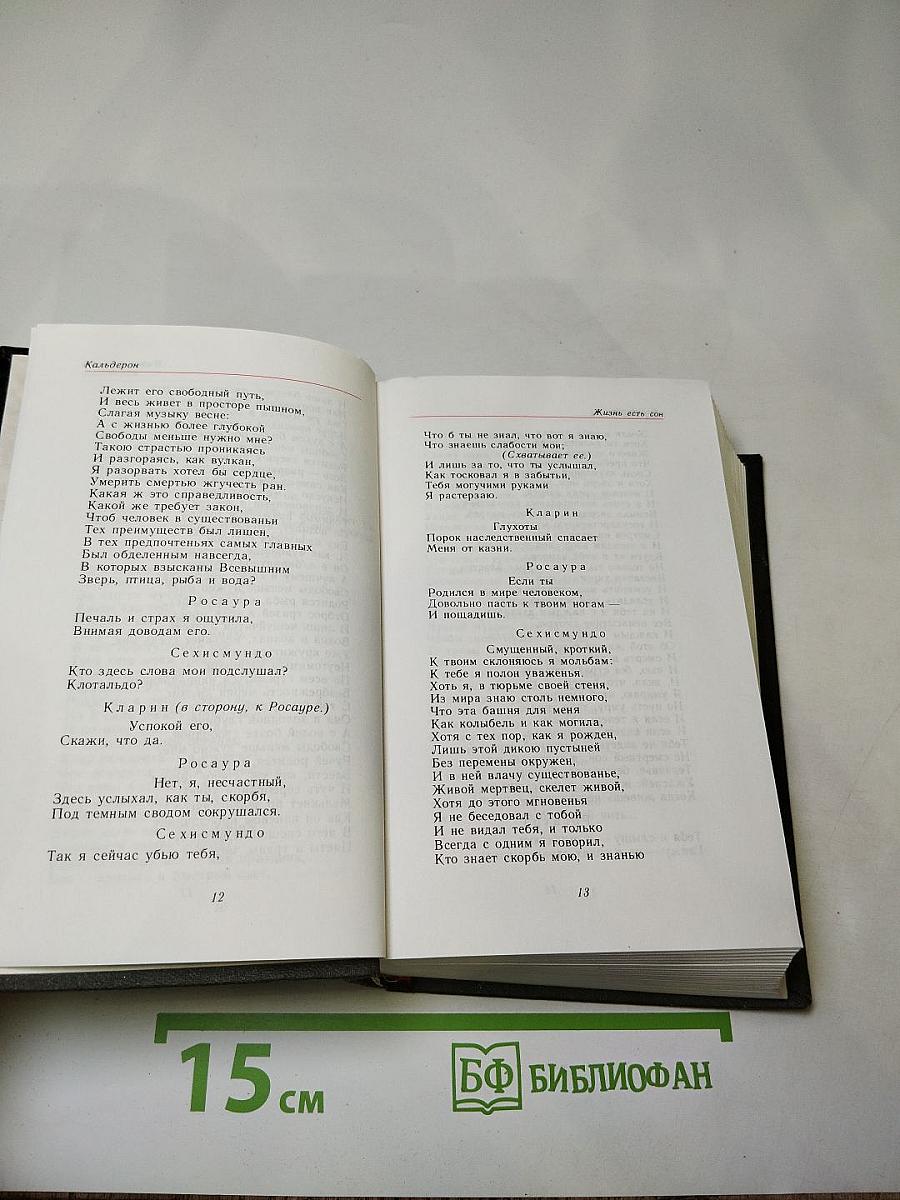 Кальдерон
Лежит его свободный путь,
И весь живет в просторе пышном,
Слагая музыку весне:
А с жизнью более глубокой
Свободы меньше нужно мне?
Такою страстью проникаясь
И разгораясь, как вулкан,
Я разорвать хотел бы сердце,
Умерить смертью жгучесть ран.
Какая ж это справедливость,
Какой же требует закон,
Чтоб человек в существованьи
Тех преимуществ был лишен,
В тех предпочтеньях самых главных
Был обделенным навсегда,
В которых взысканы Всевышним
Зверь, птица, рыба и вода?
Росаура
Печаль и страх я ощутила,
Внимая доводам его.
Сехисмундо
Кто здесь слова мои подслушал?
Клотальдо?
Кларин (в сторону, к Росауре.)
Успокой его,
Скажи, что да.
Росаура
Нет, я, несчастный,
Здесь услыхал, как ты, скорбя,
Под темным сводом сокрушался.
Сехисмундо
Так я сейчас убью тебя,
12
Жизнь есть сон
Что б ты не знал, что вот я знаю,
Что знаешь слабости мои;
(Схватывает ее.)
И лишь за то, что ты услышал,
Как тосковал я в забытьи,
Тебя могучими руками
Я растерзаю.
Кларин
Глухоты
Порок наследственный спасает
Меня от казни.
Росаура
Если ты
Родился в мире человеком,
Довольно пасть к твоим ногам —
И пощадишь.
Сехисмундо
Смущенный, кроткий,
К твоим склоняюсь я мольбам:
К тебе я полон уваженья.
Хоть я, в тюрьме своей стеня,
Из мира знаю столь немного,
Что эта башня для меня
Как колыбель и как могила,
Хотя с тех пор, как я рожден,
Лишь этой дикою пустыней
Без перемены окружен,
И в ней влачу существованье,
Живой мертвец, скелет живой,
Хотя до этого мгновенья
Я не беседовал с тобой
И не видал тебя, и только
Всегда с одним я говорил,
Кто знает скорбь мою, и знанью
13
15 см
БФ БИБЛИОФАН